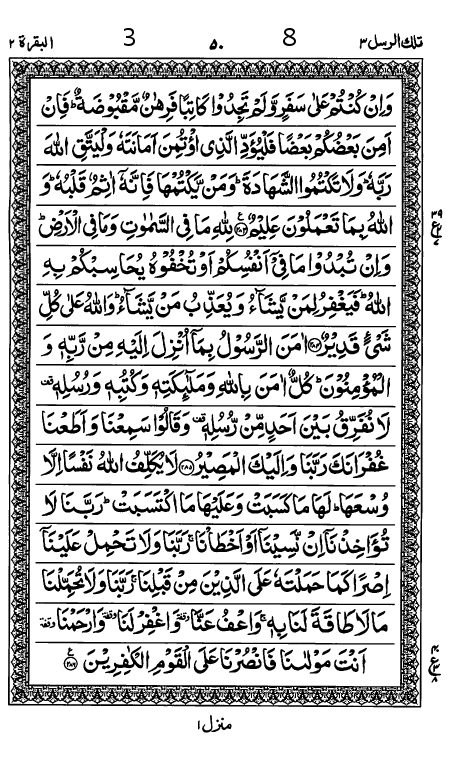 تلك الرسل ٣ 8 ٥٠ 3 البقرة ٢
وَاِنْ كُنْتُمْ عَلٰى سَفَرٍ وَّلَمْ تَجِدُوْا كَاتِبًا فَرِهٰنٌ مَّقْبُوْضَةٌ ؕ فَاِنْ
اَمِنَ بَعْضُكُمْ بَعْضًا فَلْيُؤَدِّ الَّذِى اؤْتُمِنَ اَمَانَتَهٗ وَلْيَتَّقِ اللّٰهَ
رَبَّهٗ ؕ وَلَا تَكْتُمُوا الشَّهَادَةَ ؕ وَمَنْ يَّكْتُمْهَا فَاِنَّهٗۤ اٰثِمٌ قَلْبُهٗ ؕ وَ
اللّٰهُ بِمَا تَعْمَلُوْنَ عَلِيْمٌ ﴿٢٨٣﴾ لِلّٰهِ مَا فِى السَّمٰوٰتِ وَمَا فِى الْاَرْضِ ؕ
وَاِنْ تُبْدُوْا مَا فِىْۤ اَنْفُسِكُمْ اَوْ تُخْفُوْهُ يُحَاسِبْكُمْ بِهِ
اللّٰهُ ؕ فَيَغْفِرُ لِمَنْ يَّشَآءُ وَيُعَذِّبُ مَنْ يَّشَآءُ ؕ وَاللّٰهُ عَلٰى كُلِّ
شَىْءٍ قَدِيْرٌ ﴿٢٨٤﴾ اٰمَنَ الرَّسُوْلُ بِمَاۤ اُنْزِلَ اِلَيْهِ مِنْ رَّبِّهٖ وَ
الْمُؤْمِنُوْنَ ؕ كُلٌّ اٰمَنَ بِاللّٰهِ وَمَلٰٓئِكَتِهٖ وَكُتُبِهٖ وَرُسُلِهٖ قف
لَا نُفَرِّقُ بَيْنَ اَحَدٍ مِّنْ رُّسُلِهٖ قف وَقَالُوْا سَمِعْنَا وَاَطَعْنَا
غُفْرَانَكَ رَبَّنَا وَاِلَيْكَ الْمَصِيْرُ ﴿٢٨٥﴾ لَا يُكَلِّفُ اللّٰهُ نَفْسًا اِلَّا
وُسْعَهَا ؕ لَهَا مَا كَسَبَتْ وَعَلَيْهَا مَا اكْتَسَبَتْ ؕ رَبَّنَا لَا
تُؤَاخِذْنَاۤ اِنْ نَّسِيْنَاۤ اَوْ اَخْطَاْنَا ۚ رَبَّنَا وَلَا تَحْمِلْ عَلَيْنَاۤ
اِصْرًا كَمَا حَمَلْتَهٗ عَلَى الَّذِيْنَ مِنْ قَبْلِنَا ۚ رَبَّنَا وَلَا تُحَمِّلْنَا
مَا لَا طَاقَةَ لَنَا بِهٖ ۚ وَاعْفُ عَنَّا وقفة وَاغْفِرْ لَنَا وقفة وَارْحَمْنَا وقفة
اَنْتَ مَوْلٰىنَا فَانْصُرْنَا عَلَى الْقَوْمِ الْكٰفِرِيْنَ ﴿٢٨٦﴾
منزل ١